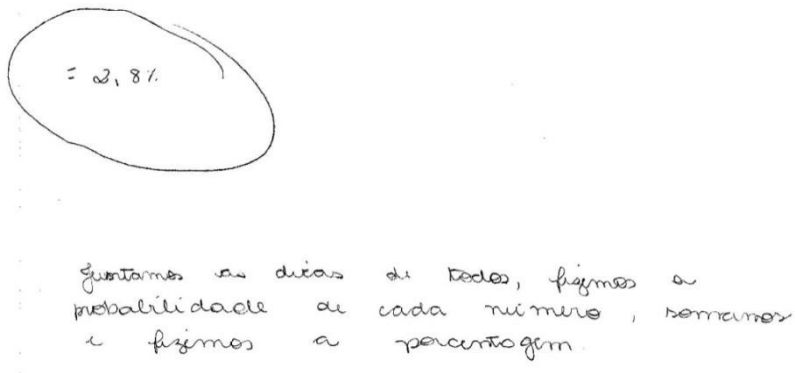 = 2,8%
Juntamos as dicas de todos, fizemos a
probabilidade de cada número, somamos
e fizemos a porcentagem